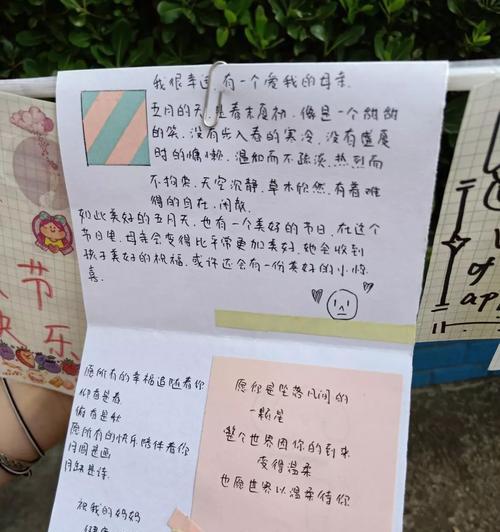 我很幸运,有一个爱我的母亲.
五月的天,是春末夏初,像是一个甜甜
的笑.没有乍入春的寒冷,没有盛夏
时的慵懒.温和而不疏淡,热烈而
不拘束.天空沉静,草木欣然,有着难
得的自在、闲散.
如此美好的五月天,也有一个美好的节日.在这个
节日里,母亲会变得比平常更加美好.她会收到
孩子美好的祝福,或许还会有一份美好的小惊
喜.
愿所有的幸福追随着你
仰首是春
俯首是秋
愿所有的快乐陪伴着你
月圆是画
月缺是诗.
祝我的妈妈
健康
愿你是坠落凡间的
一颗星
整个世界因你的到来
变得温柔
也愿世界以温柔待你
节
快乐
of